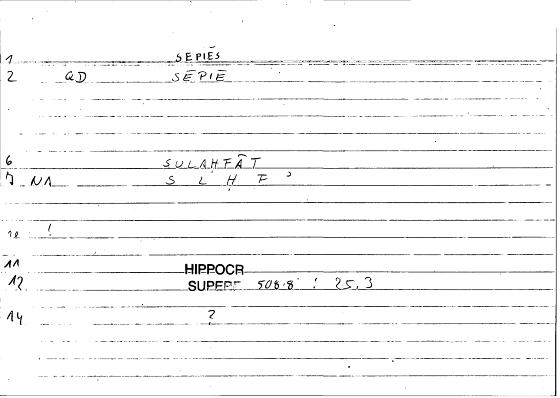 1 SEPIĒS
2 QD SĒPIE
6 SULAḤFĀT
7 NA S L Ḥ F
10 !
11 HIPPOCR
12 SUPERF 508.8 : 25.3
14 ?